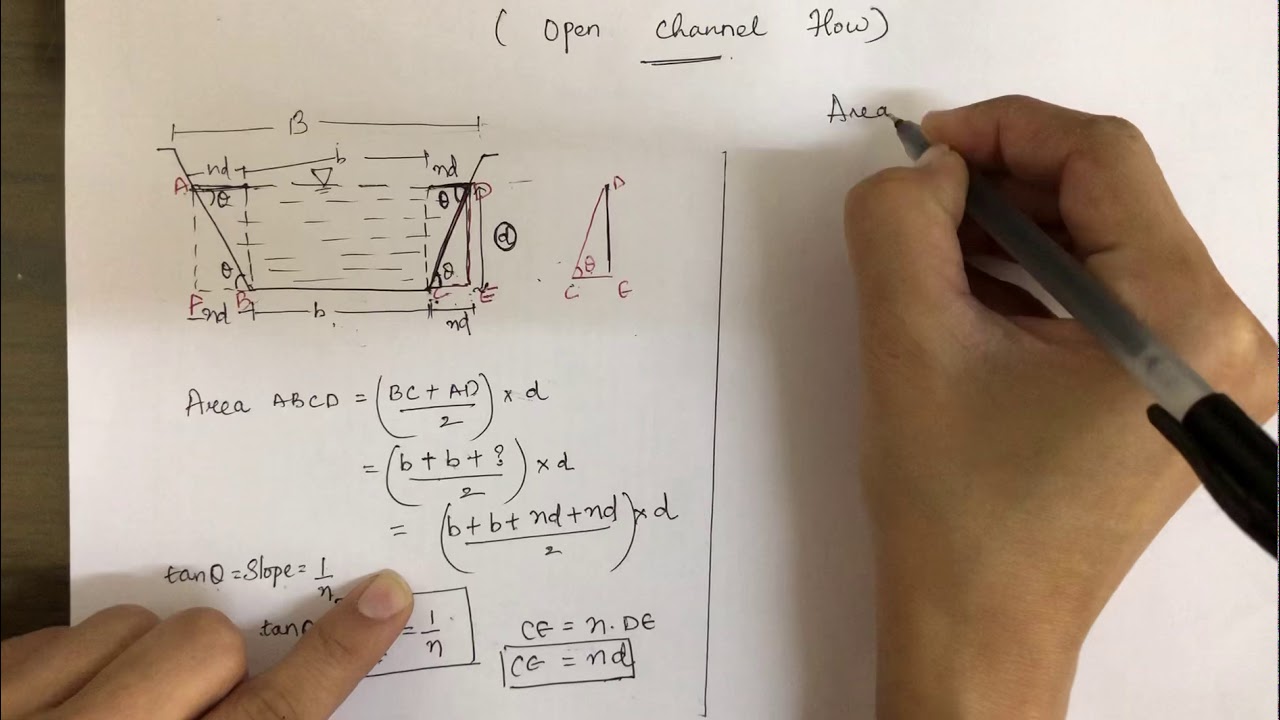 ( Open channel flow)
Area
B
nd b nd
A θ θ D
d
θ θ
F B C E
nd b nd
D
θ
C E
Area ABCD = (BC + AD / 2) × d
= (b + b + ? / 2) × d
= (b + b + nd + nd / 2) × d
tanθ = Slope = 1/n
tan = 1/n
CE = n. DE
CE = nd